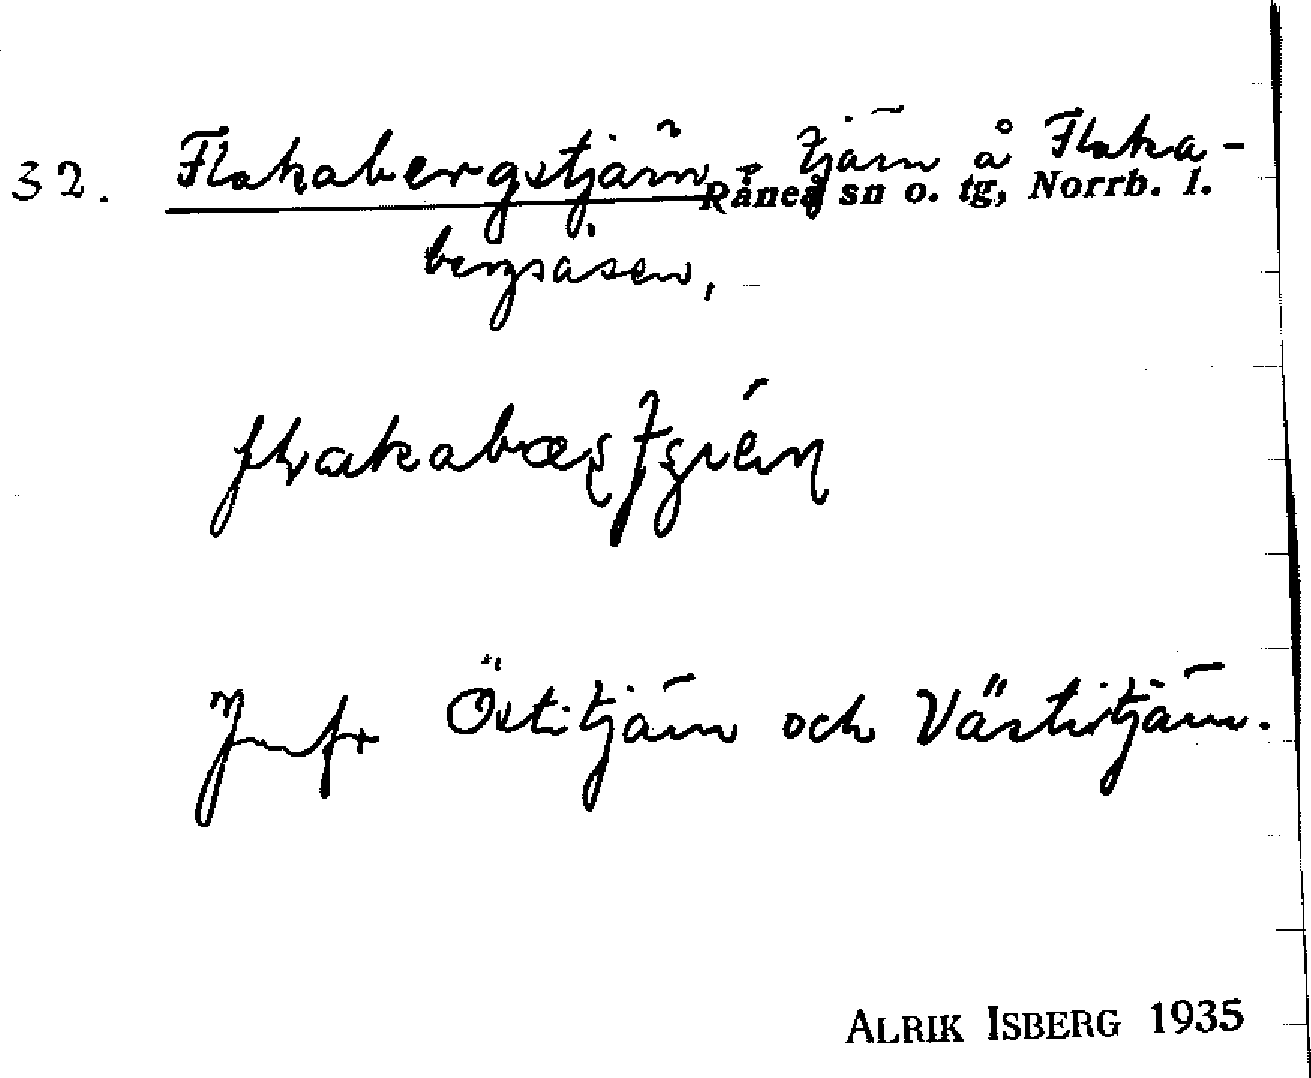 32. Flakabergstjärn, tjärn å Flaka-
Råneå sn o. tg, Norrb. l.
bergsåsen,
Jmfr Östitjärn och Västitjärn.
ALRIK ISBERG 1935